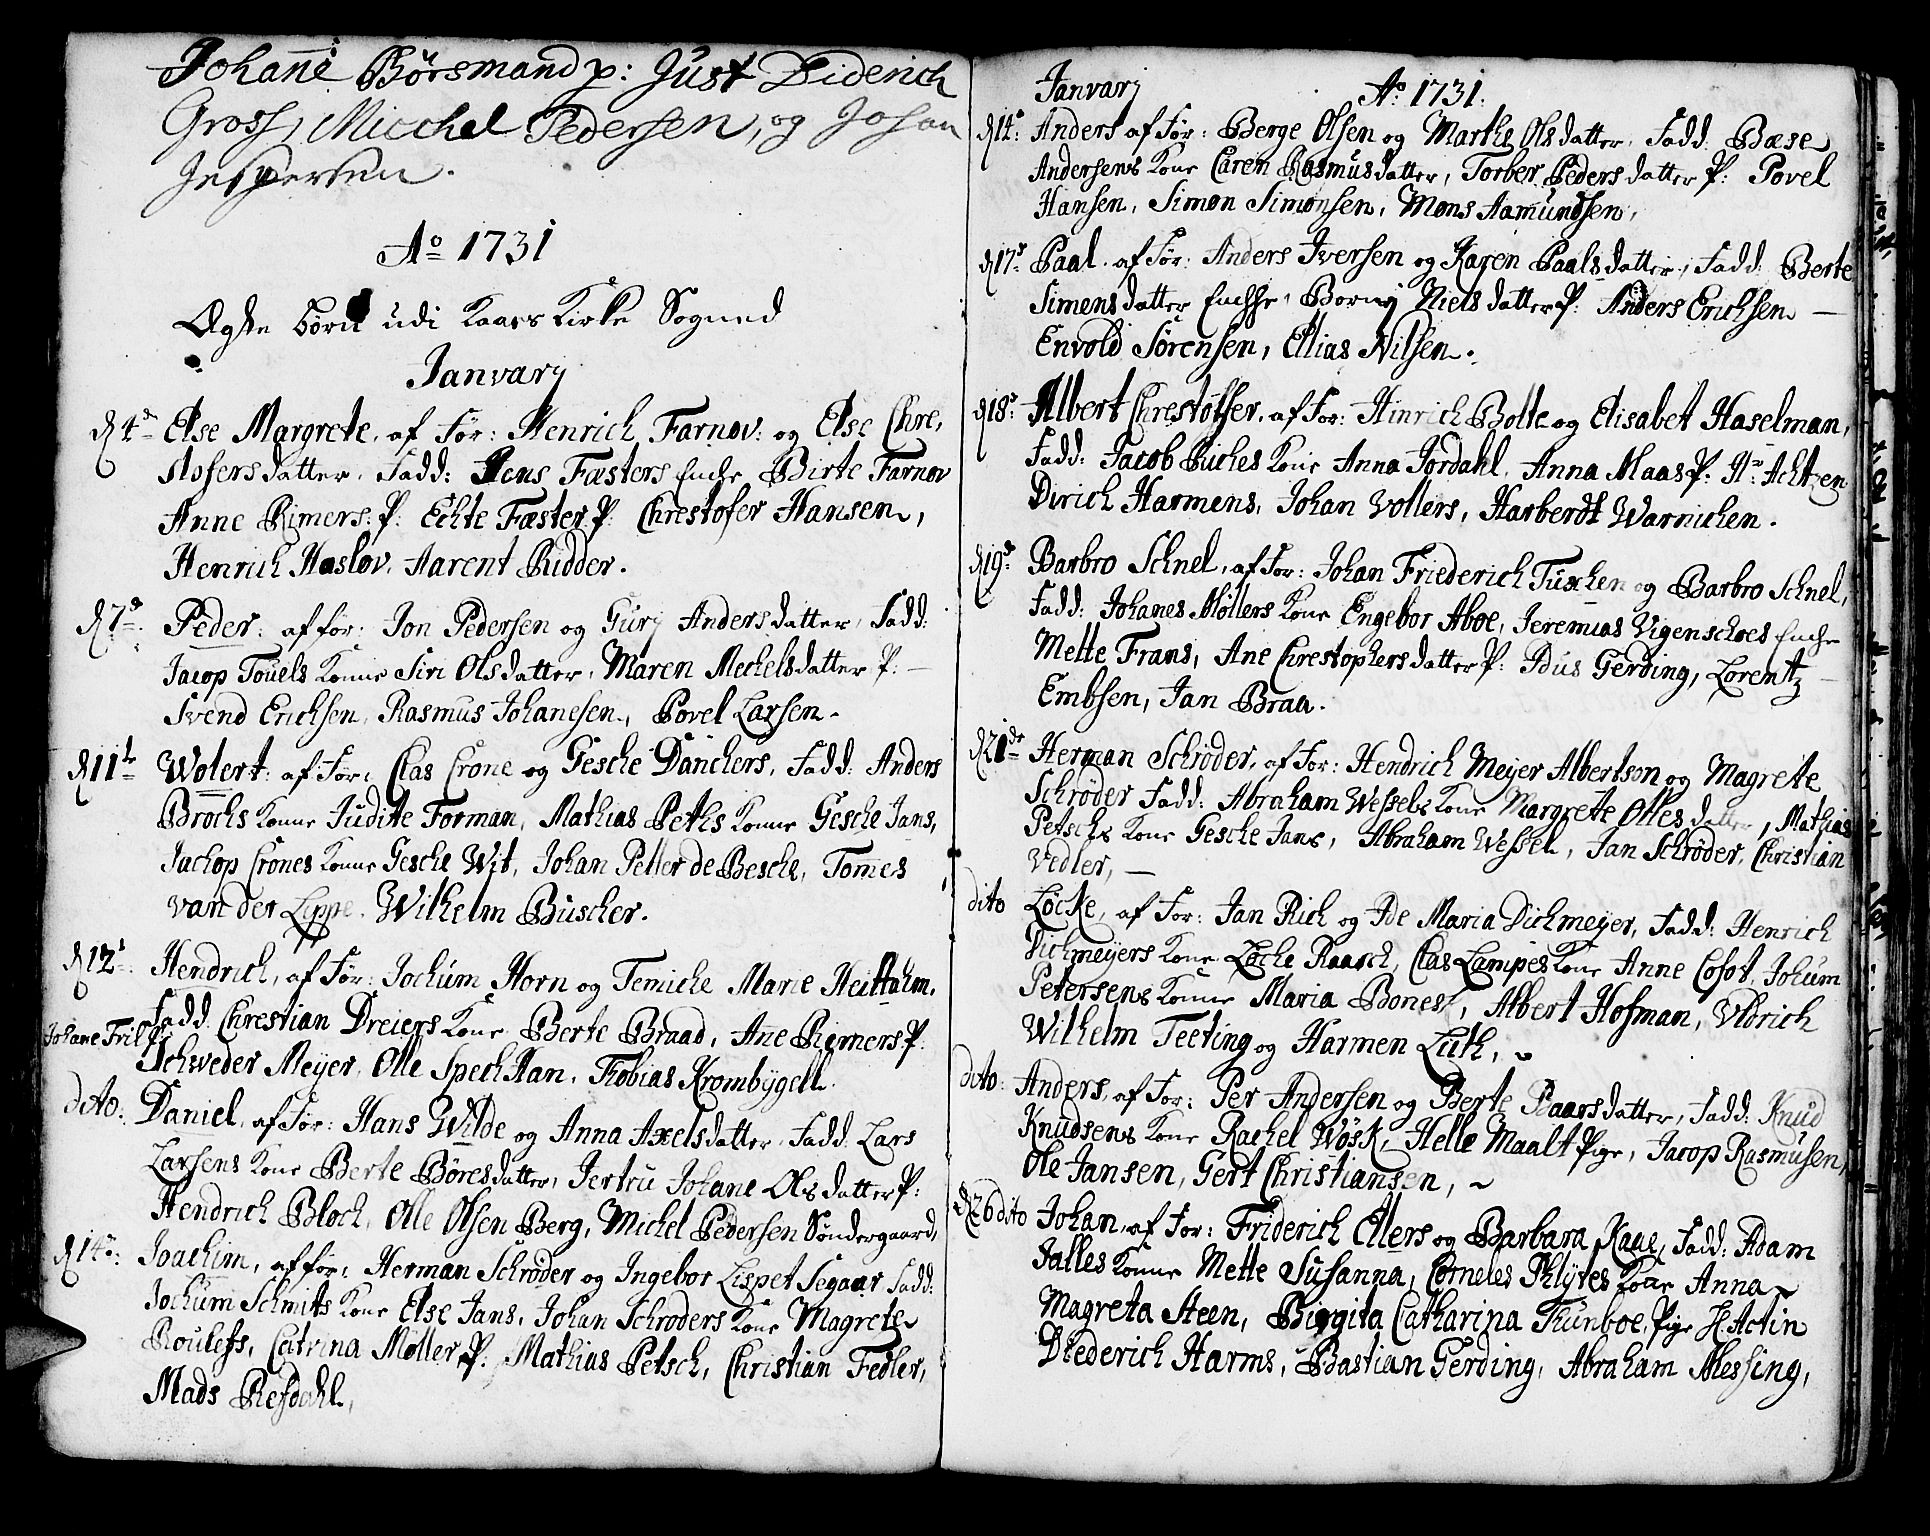 Johane Børsmand p: Just Diderich
Gross, Micchel Pedersen, og Johan
Jespersen.
Ao 1731
Ægte børn udi Kaars Kirke Sogned
Janvarij
d 4de Else Margrete, af For: Henrich Farnov: og Else Chre,
stofersdatter, Fadd: Jens Fæsters Enche Birte Farnov
Anne Rimers: P: Echte Fæster P: Chrestofer Hansen,
Henrich Haslov, Aarent Ridder.
d 7de Peder: af for: Jon Pedersen og Gurj Andersdatter, Fadd:
Jacop Touels Konne Siri Olsdatter, Maren Mechelsdatter P:
Svend Erichsen, Rasmus Johanesen, Povel Larsen.
d 11te Wolert: af For: Clas Crone og Gesche Danchers, Fadd: Anders
Brochs Konne Judite Forman, Mathias Peths Konne Gesche Jans,
Jachop Crones Konne Gesche Wit, Johan Petter de Besche, Tomes
van der Lippe, Wilhelm Buscher.
d 12te Hendrich, af For: Jochum Horn og Temiche Marie Heittahm.
Fadd Chrestian Dreiers Kone Berte Braad, Ane Rimers P:
Johane Fril P:
Schweder Meyer, Olle Spech Han, Tobias Krombygell.
dito. Daniel, af For: Hans Wilde og Anna Axelsdatter Fadd Lars
Larsens Kone Berte Böresdatter, Jertru Johane Olsdatter P:
Hendrich Bloch, Olle Olsen Berg, Michel Pedersen Søndergaard,
d 14de: Joachim, af for: Herman Schrøder og Ingebor Lispet Segaar Fadd:
Jochum Schmits Kone Else Jans, Johan Schroders Kone Magrete
Roulefs, Catrina Møller P: Mathias Petsch, Christian Fedler,
Mads Refsdahl,
Janvarj Ao 1731.
d 12te: Anders af For: Berge Olsen og Marthe Olsdatter, Fadd: Bæse
Andersens Kone Caren Rasmusdatter, Torber Pedersdatter P: Povel
Hansen, Simon Simonsen, Mons Aamundsen,
d 17de Paal. af For: Anders Iversen og Karen Paalsdatter, Fadd: Berte
Simensdatter Enche, Borni Nielsdatter P: Anders Erichsen
Envold Sörensen, Ellias Nilsen.
d 18de: Albert Chrestoffer, af For: Hinrich Bolte og Elisabet Haselman,
Fadd: Jacob Riches Kone Anna Jordahl, Anna Maas P: Hr Achtzen
Dirich Harmens, Johan Vollers, Harberdt Warnichen.
d 19de: Barbro Schnel, af For: Johan Friederich Tuschen og Barbro Schnel,
Fadd: Johanes Møllers Kone Engebor Aboe, Jeremias Vigenschoes Enche
Mette Frans, Ane Chrestophersdatter P: Adus Gerding, Lorentz
Embsen, Jan Braa.
d 21de Herman Schrøder, af For: Hendrich Meyer Albertson og Magrete
Schroder Fadd: Abraham Wessels Kone Margrete Ollesdatter, Mathias
Petschs Kone Gesche Jans, Abraham Wessel, Jan Schrøder, Christian
Vedler,
dito Løcke, af For: Jan Rich og Ade Maria Dichmeyer, Fadd: Henrich
Dichmeyers Kone Løche Raasch, Clas Lampes Kone Anne Cofot, Johum
Petersens Konne Maria Bonest, Albert Hofman, Uldrich
Wilhelm Teeting og Harmen Luth,
dito: Anders, af For: Per Andersen og Berte Paarsdatter, Fadd: Knud
Knudsens Kone Rachel Wosk, Helle Maalt Pige, Jacop Rasmusen,
Ole Jansen, Gert Christiansen,
d 26 dito Johan, af For: Friderich Ellers og Barbara Kaae, Fadd: Adam
Jalles Konne Mette Susanna, Corneles Phlytes Kone Anna
Magreta Steen, Birgita Catharina Tunboe, Pige H Actin
Diederich Harms, Bastian Gerding, Abraham Messing,